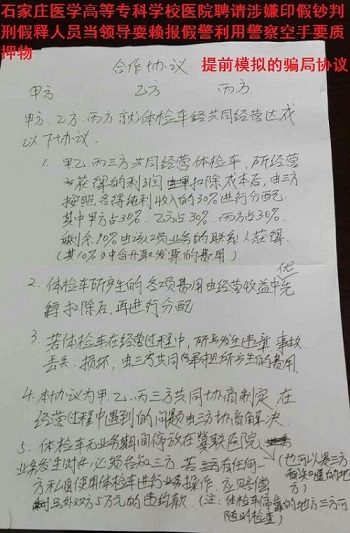 石家庄医学高等专科学校医院聘请涉嫌印假钞判
刑假释人员当领导耍赖报假警利用警察空手要质
押物
合作协议
提前模拟的骗局协议
甲方 乙方 丙方
甲方、乙方、丙方 就体检车经共同经营达成
以下协议.
1. 甲乙丙三方共同经营体检车, 所经营
获得的利润 扣除成本后, 由三方
按照 纯利收入的30%进行分配
其中甲方占30% 乙方占30% 丙方占30%
剩余10%由该项业务的联系人获得.
(其10%中含开取发票的费用)
2. 体检车所产生的各项费用由经营收益中优先
扣除后, 再进行分配
3. 若体检车在经营过程中, 所发生违章 事故
丢失. 损坏, 由三方共同 承担所产生的费用
4. 本协议为甲. 乙. 丙三方共同协商制定 在
经营过程中遇到的问题由三方协商解决.
5. 体检车无业务期间停放在冀联医院
业务发生时 必须告知三方. 若三方有任何一
方私自使用体检车进行业务操作 应赔偿
另外双方5万元的违约款
(也可以是三方 的地方)
(注: 体检车停 的地方三方可
随时检查)